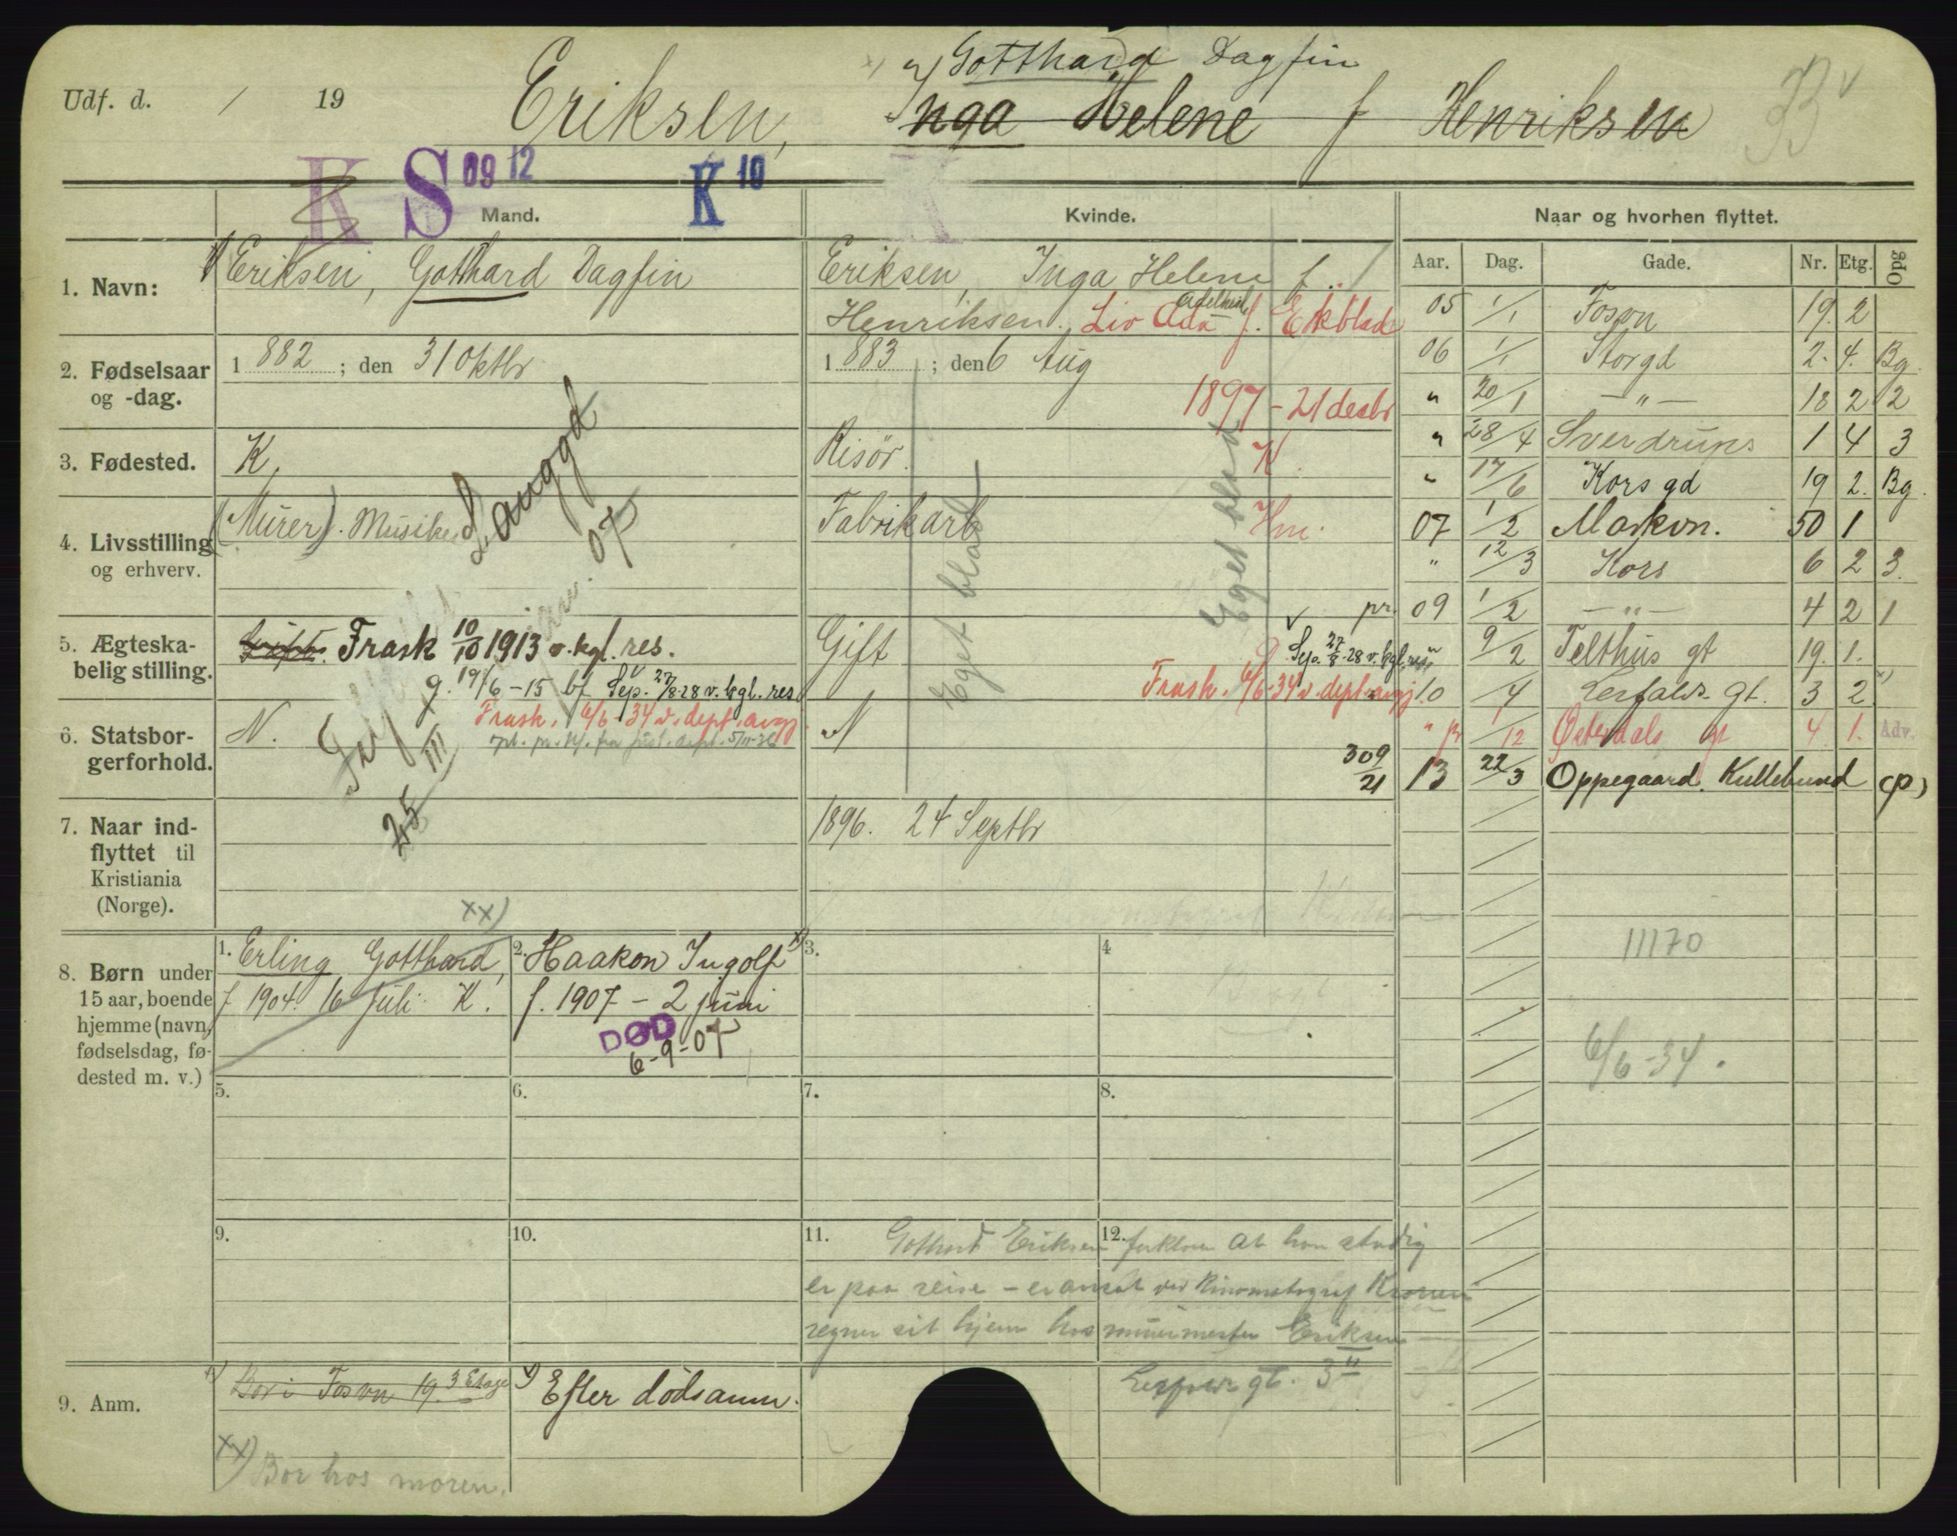 Gotthard Dagfin
Udf. d. / 19 Eriksen, Inga Helene f Henriksen
K S 09 12 K 10 K
Mand. Kvinde. Naar og hvorhen flyttet.
Aar. Dag. Gade. Nr. Etg. Opg
1. Navn: Eriksen, Gotthard Dagfin
Eriksen, Inga Helene f.
Henriksen. Liv Ada Adelheid f. Ekblad
2. Fødselsaar og -dag. 1 882 ; den 31 Oktbr
1 883 ; den 6 Aug
1897 - 21 desbr
3. Fødested. K.
Risör. K.
4. Livsstilling og erhverv. (Murer). Musiker
Fabrikarb Hm.
Langgd
07
5. Ægteska-belig stilling. Gift. Frask 10/10 1913 v. kgl. res.
g. 19/6 - 15 bf Sep. 27/8-28 v. kgl. res
Gift Sep. 27/8-28 v. kgl. res
Frask. 6/6-34 v. dept. avgj
6. Statsbor-gerforhold. N.
Frask. 6/6-34 v. dept. avgj.
N
Eget blad
Eget blad
25/III
309/21
7. Naar ind-flyttet til Kristiania (Norge).
1896. 24 Septbr
8. Børn under 15 aar, boende hjemme (navn, fødselsdag, fø-dested m. v.)
xx)
1. Erling Gotthard,
f 1904. 16 Juli K.
2. Haakon Ingolf x)
f. 1907 - 2 juni
DØD
6-9-07
3.
4
5.
6.
7.
8.
9.
10.
11.
12.
Gothard Eriksen forklarer at han stadig
er paa reise - er ansat ved Kinematograf Kronen
regner sit hjem hos murmester Eriksen
gt. 3 II
9. Anm. Bor i Fosvn 19. 3 Etage
x) Efter dödsanm.
xx) Bor hos moren.
05 1/1 Fosvn 19. 2
06 1/1 Storgd 2. 4. Bg.
" 20/1 — " — 18 2 2
" 28/4 Sverdrups 1 4 3
" 17/6 Kors gd 19 2. Bg.
07 1/2 Markvn. 50 1
" 12/3 Kors 6 2 3.
pr. 09 1/2 — " — 4 2 1
" 9/2 Telthus gt 19. 1.
10 /4 Lerfalds gt. 3 2
" pr 1/12 Østerdals gt 4. 1. Adv.
13 22/3 Oppegaard. Kullebund (P)
11170
6/6-34.